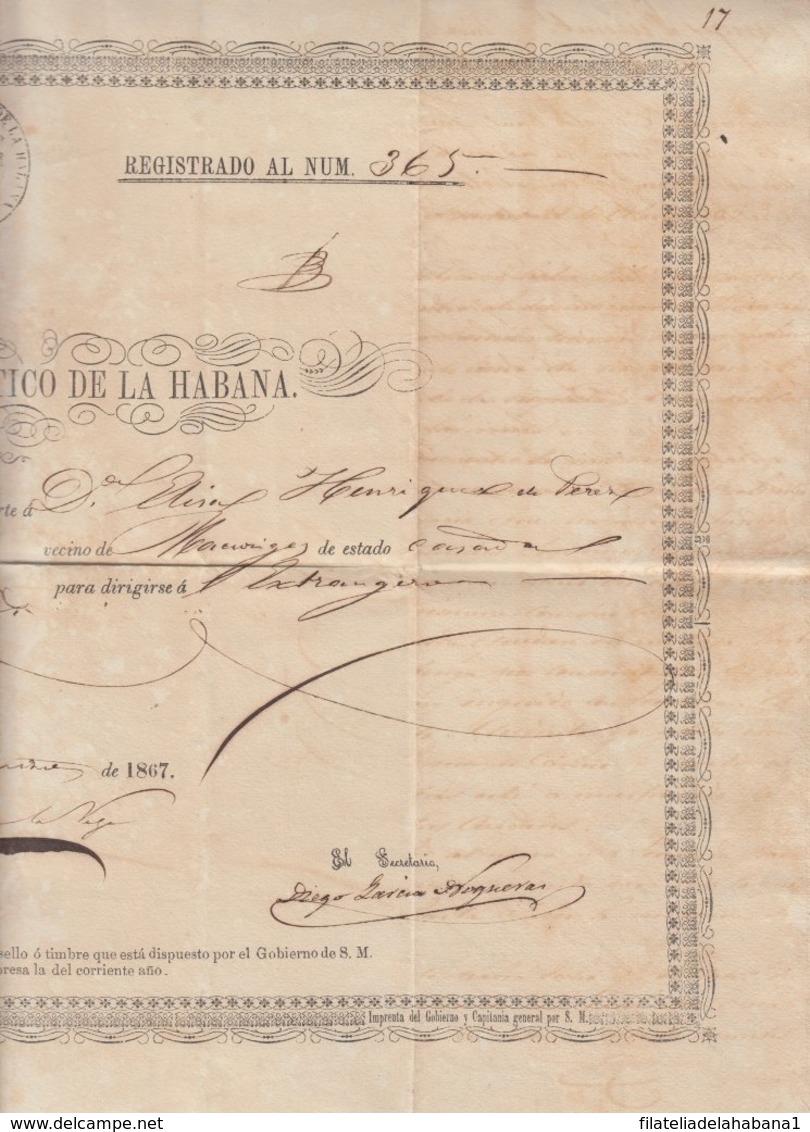 17
DE LA HABANA
REGISTRADO AL NUM. 365.
TICO DE LA HABANA.
rte á Dª Elisa Henriquez de Perez
vecino de de estado casada
para dirigirse á Extrangero
de 1867.
la Vega
El Secretario,
Diego Garcia Nogueras
sello ó timbre que está dispuesto por el Gobierno de S. M.
presa la del corriente año.
Imprenta del Gobierno y Capitanía general por S. M.
www.delcampe.net
filateliadelahabana1